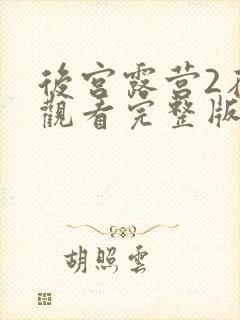 後宮露营2在
觀看完整版
胡照雲